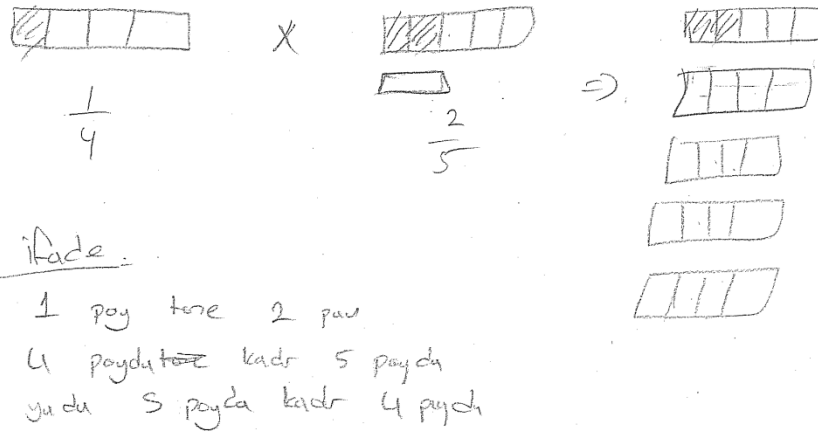 X
⇒
1/4
2/5
ifade.
1 pay tane 2 pay
4 payda kadr 5 payda
ya da 5 payda kadr 4 payda